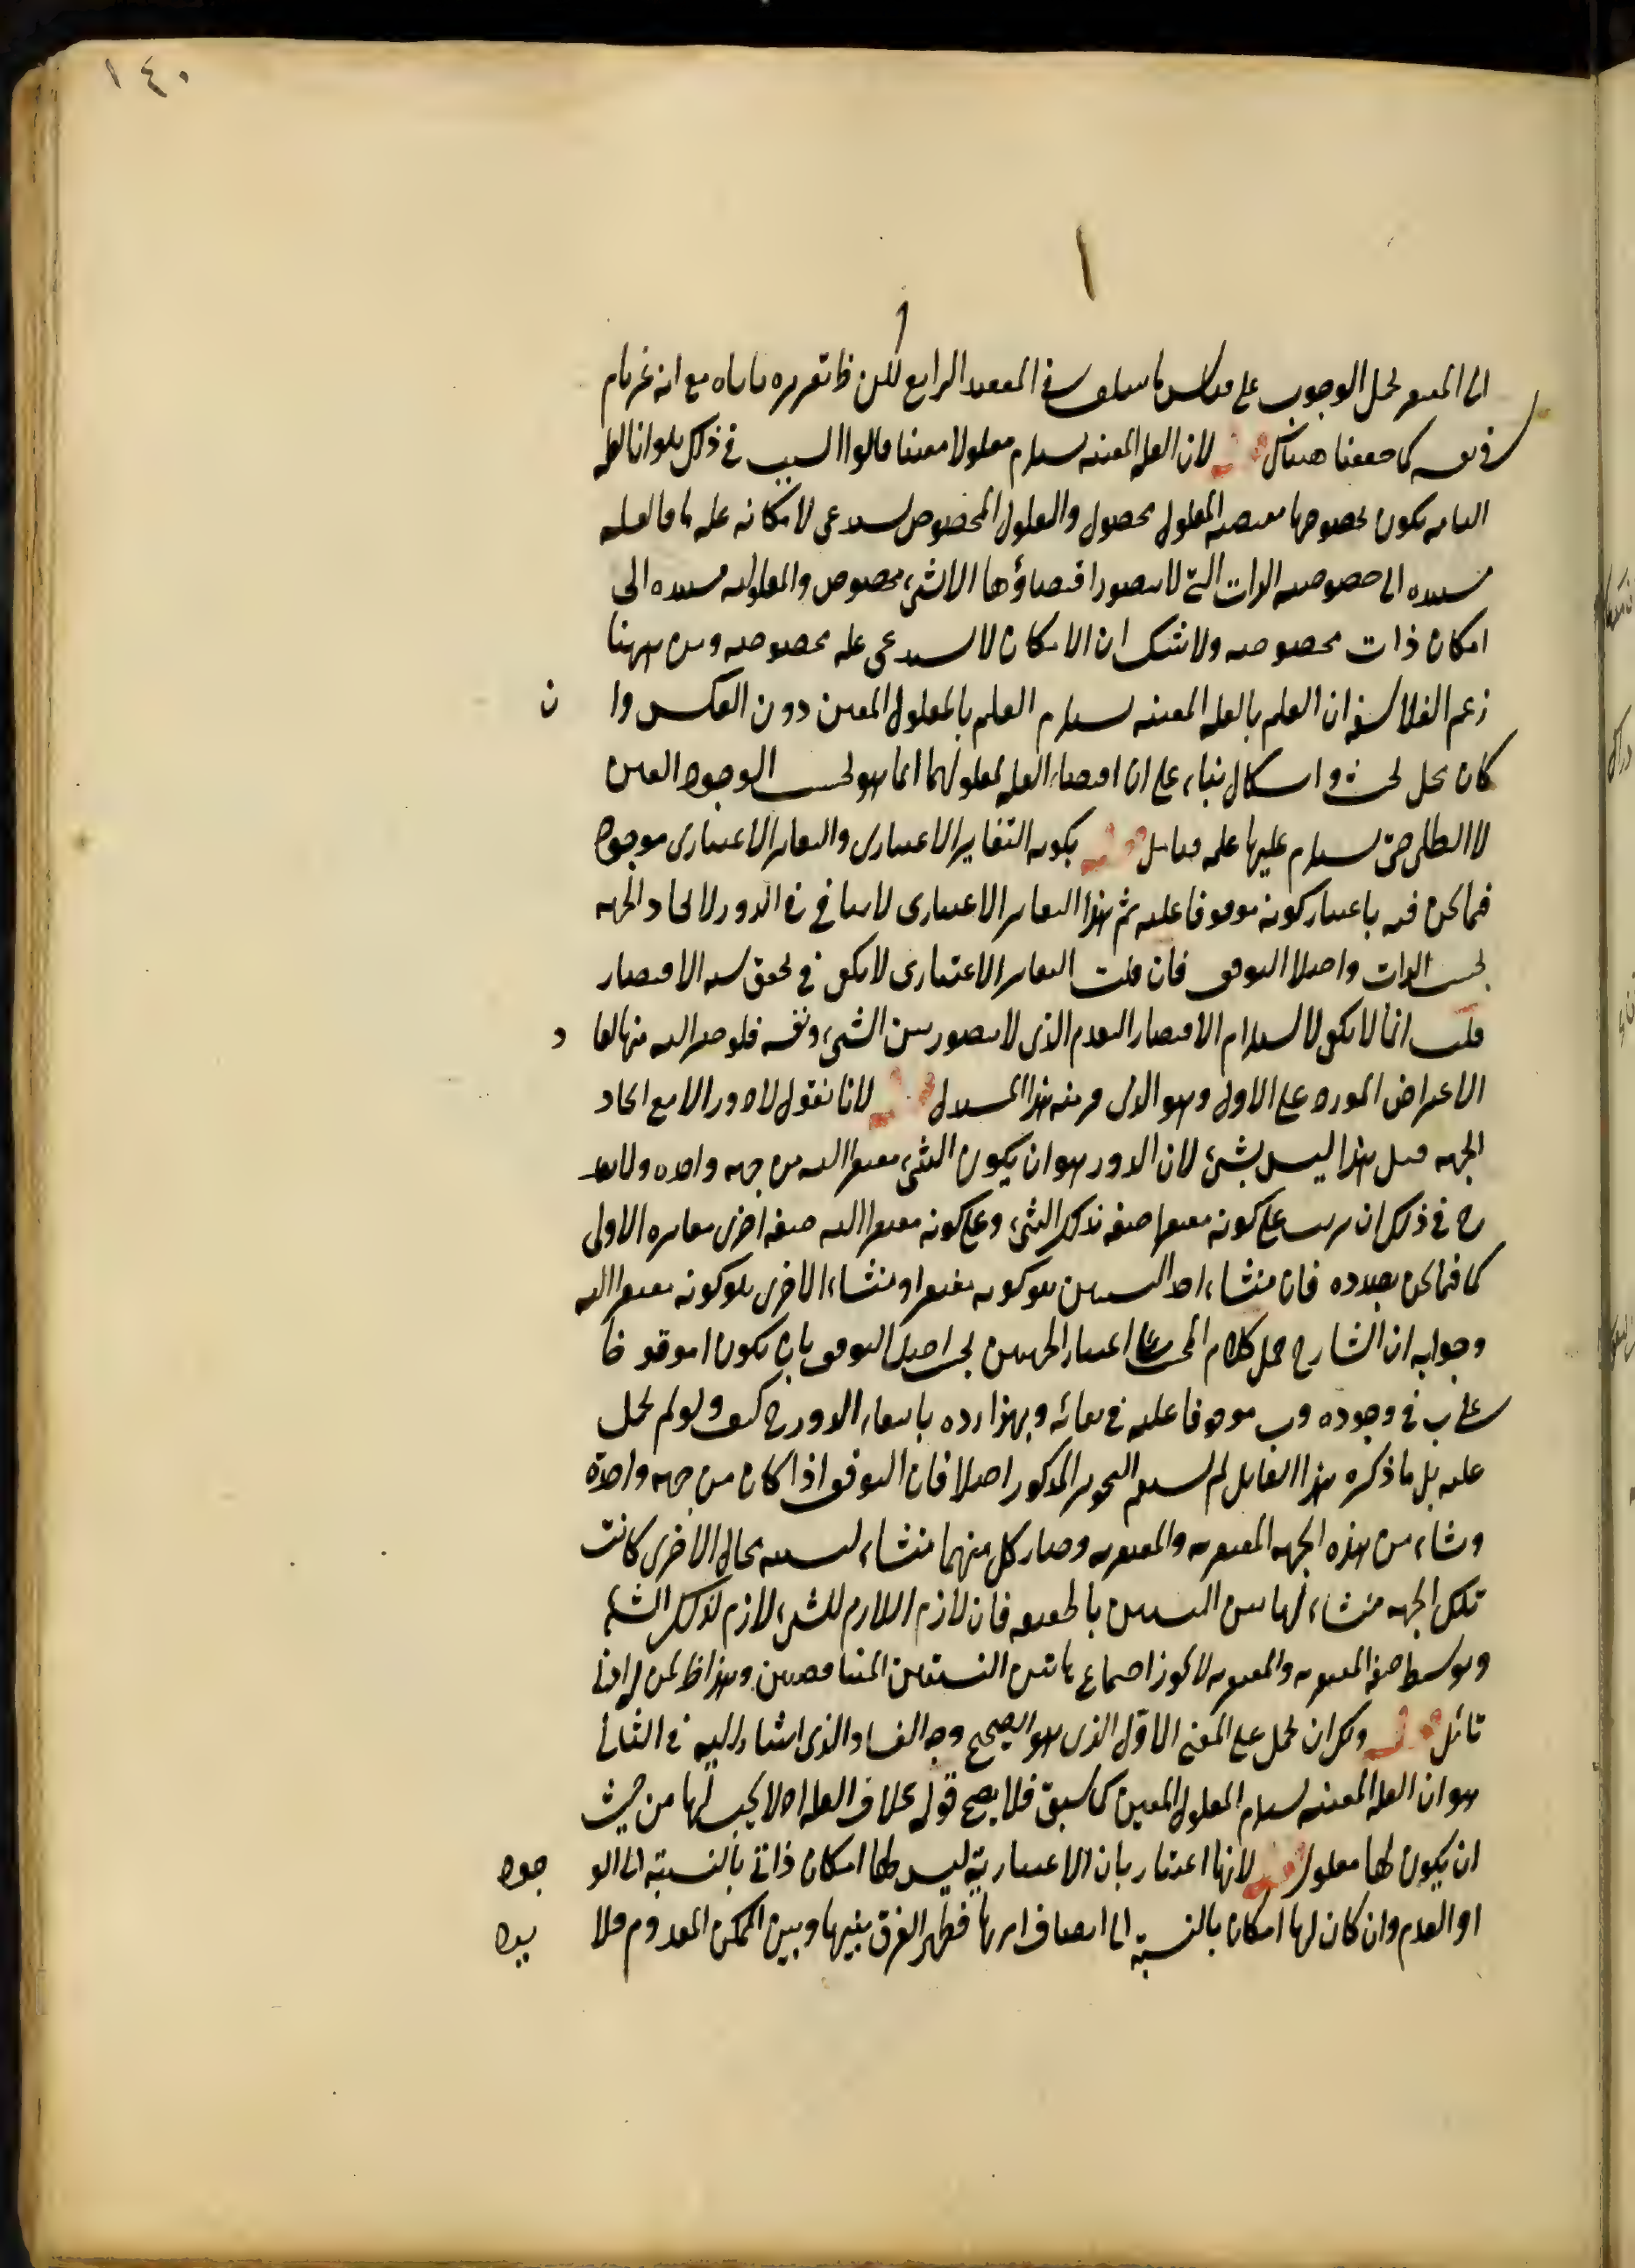 ١٤٠
الى المفتقر لحمل الوجوب على قياس ما سلف في المقصد الرابع لكن ظ تقريره ياباه مع انه غير تام
في نفسه كما حققنا هناك قوله لان العلة المعينة يستلزم معلولا معينا قالوا السبب في ذلك هو ان العلة
التامة يكون بخصوصها مقتضية لمعلول مخصوص والمعلول المخصوص يستدعى لامكانه علة ما فالعلية
مستندة الى خصوصية الذات التي لا يتصور اقتضاؤها الا لشيء مخصوص والمعلولية مستندة الى
امكان ذات مخصوصة ولا شك ان الامكان لا يستدعى علة مخصوصة ومن ههنا
زعم الفلاسفة ان العلم بالعلة المعينة يستلزم العلم بالمعلول المعين دون العكس وان
كان محل بحث واشكال بناء على ان اقتضاء العلة لمعلولها انما هو بحسب الوجود العيني
لا الظلي حتى يستلزم عليها علمه فتأمل قوله يكون التغاير الاعتبارى والتغاير الاعتبارى موجود
فيما نحن فيه باعتبار كونه موقوفا عليه ثم هذا التغاير الاعتبارى لا ينافي في الدور لاتحاد الجهة
بحسب الذات واصل التوقف فان قلت التغاير الاعتبارى لا يكفى في تحقق نسبة الافتقار
قلت انما لا يكفى لاستلزام الافتقار التقدم الذى لا يتصور بين الشيء ونفسه فلو صير اليه منها لعاد
الاعتراض المورد على الاول وهو الذى فر منه هذا المستدل قوله لانا نقول لا دور الا مع اتحاد
الجهة قيل هذا ليس بشيء لان الدور هو ان يكون الشيء مفتقرا اليه من جهة واحدة ولا يقد
ح في ذلك ان يترتب على كونه مفتقرا صفة لذلك الشيء وعلى كونه مفتقرا اليه صفة اخرى مغايرة الاولى
كما فيما نحن بصدده فان منشاء احد النسبتين هو كونه مفتقرا ومنشاء الاخرى هو كونه مفتقرا اليه
وجوابه ان الشارح حمل كلام المجيب على اعتبار الجهتين بحسب اصل التوقف بان يكون ا موقوفا
على ب في وجوده وب موقوفا عليه في بقائه وبهذا رده بانتفاء الدور ح كيف ولو لم يحمل
عليه بل ما ذكره هذا القايل لم يستقم التجويز المذكور اصلا فان التوقف اذا كان من جهة واحدة
ونشاء من هذه الجهة المفتقرية والمفتقرية وصار كل منهما منشاء لنسبة يخالف الاخرى كانت
تلك الجهة منشاء لهاتين النسبتين بالحقيقة فان لازم اللازم للشيء لازم لذلك الشيء
وبتوسط صفة المفتقرية والمفتقرية لا يجوز اجتماع هاتين النسبتين المتناقضتين وهذا ظ لمن له ادنى
تأمل قوله ولكن ان يحمل على المعنى الاول الذى هو الصحيح وجه الفساد الذى اشار اليه في الثاني
هو ان العلة المعينة يستلزم المعلول المعين كما سبق فلا يصح قوله بخلاف العلة اذ لا يجب لها من حيث
ان يكون لها معلول قوله لانها اعتبارية بان الاعتبارية ليس لها امكان ذاتي بالنسبة الى الوجود
او العدم وان كان لها امكان بالنسبة الى اتصاف امر بها فظهر الفرق بينها وبين الممكن المعدوم فلا يرد